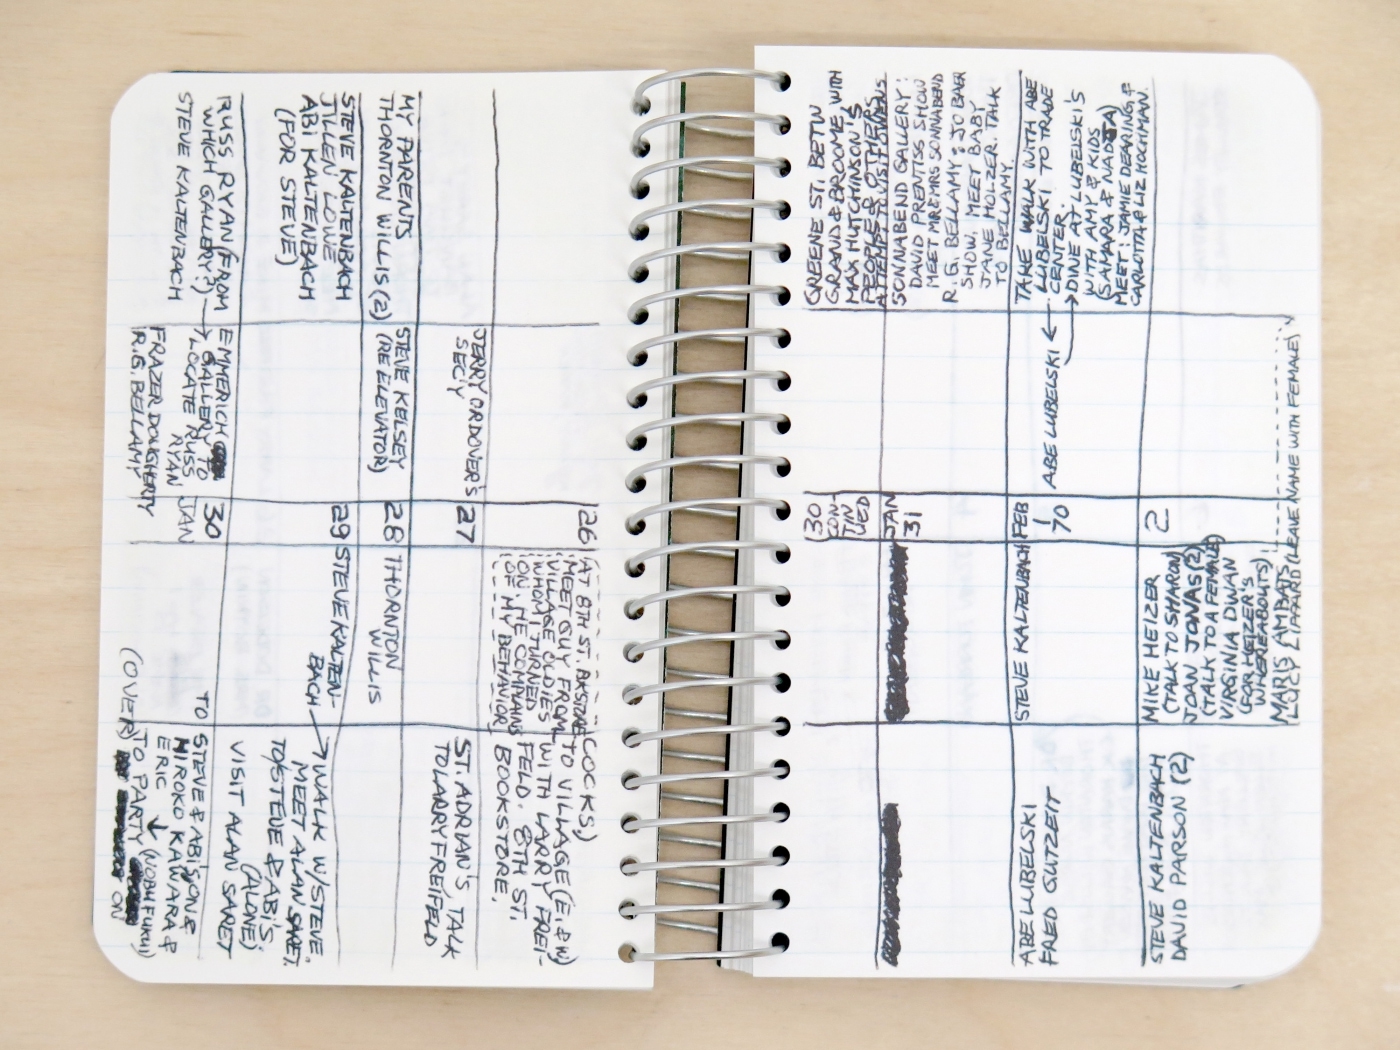 26
(AT 8TH ST. BKSTORE
(MEET GUY FROM
VILLAGE OLDIES
WHOM I TURNED
ON THE COMMANS
OF MY BEHAVIOR)
COCKS,)
TO VILLAGE (E & W)
WITH LARRY FREI-
FELD. 8TH ST.
BOOKSTORE,
JERRY ORDOVER'S
SEC'Y
27
ST. ADRIAN'S, TALK
TO LARRY FREIFELD
MY PARENTS
THORNTON WILLIS (2)
STEVE KELSEY
(RE ELEVATOR)
28
THORNTON
WILLIS
STEVE KALTENBACH
JILLEN LOWE
ABI KALTENBACH
(FOR STEVE)
29
STEVE KALTEN-
BACH
WALK W/STEVE.
MEET ALAN SARET.
TO STEVE & ABI'S.
(ALONE)
VISIT ALAN SARET
RUSS RYAN (FROM
WHICH GALLERY?)
STEVE KALTENBACH
EMMERICH
GALLERY TO
LOCATE RUSS
RYAN
FRAZER DOUGHERTY
R.G. BELLAMY
30
JAN
TO
STEVE & ABI'S ON &
HIROKO KAWARA &
ERIC (NOBU FUKUI)
TO PARTY ON
(OVER)
30
CON-
TIN
UED
GREENE ST. BETW
GRAND & BROOME, WITH
MAX HUTCHINSON'S
PEOPLE & OTHERS
JAN
31
SONNABEND GALLERY:
DAVID PRENTISS SHOW
MEET MR & MRS SONNABEND
R. G. BELLAMY: JO BAER
SHOW. MEET BABY
JANE HOLZER. TALK
TO BELLAMY.
ABE LUBELSKI
FRED GUTZEIT
STEVE KALTENBACH
FEB
1
70
ABE LUBELSKI
TAKE WALK WITH ABE
LUBELSKI TO TRADE
CENTER
DINE AT LUBELSKI'S
WITH AMY & KIDS
(SAMARA & NADJA)
MEET: JAMIE DEARING, &
CARLOTTA & LIZ HOCHMAN.
STEVE KALTENBACH
DAVID PARSON (2)
MIKE HEIZER
(TALK TO SHARON)
JOAN JONAS (2)
(TALK TO A FEMALE)
VIRGINIA DWAN
(FOR HEIZER'S
WHEREABOUTS)
MARIS AMBATS
LUCY LIPPARD (LEAVE NAME WITH FEMALE)
2